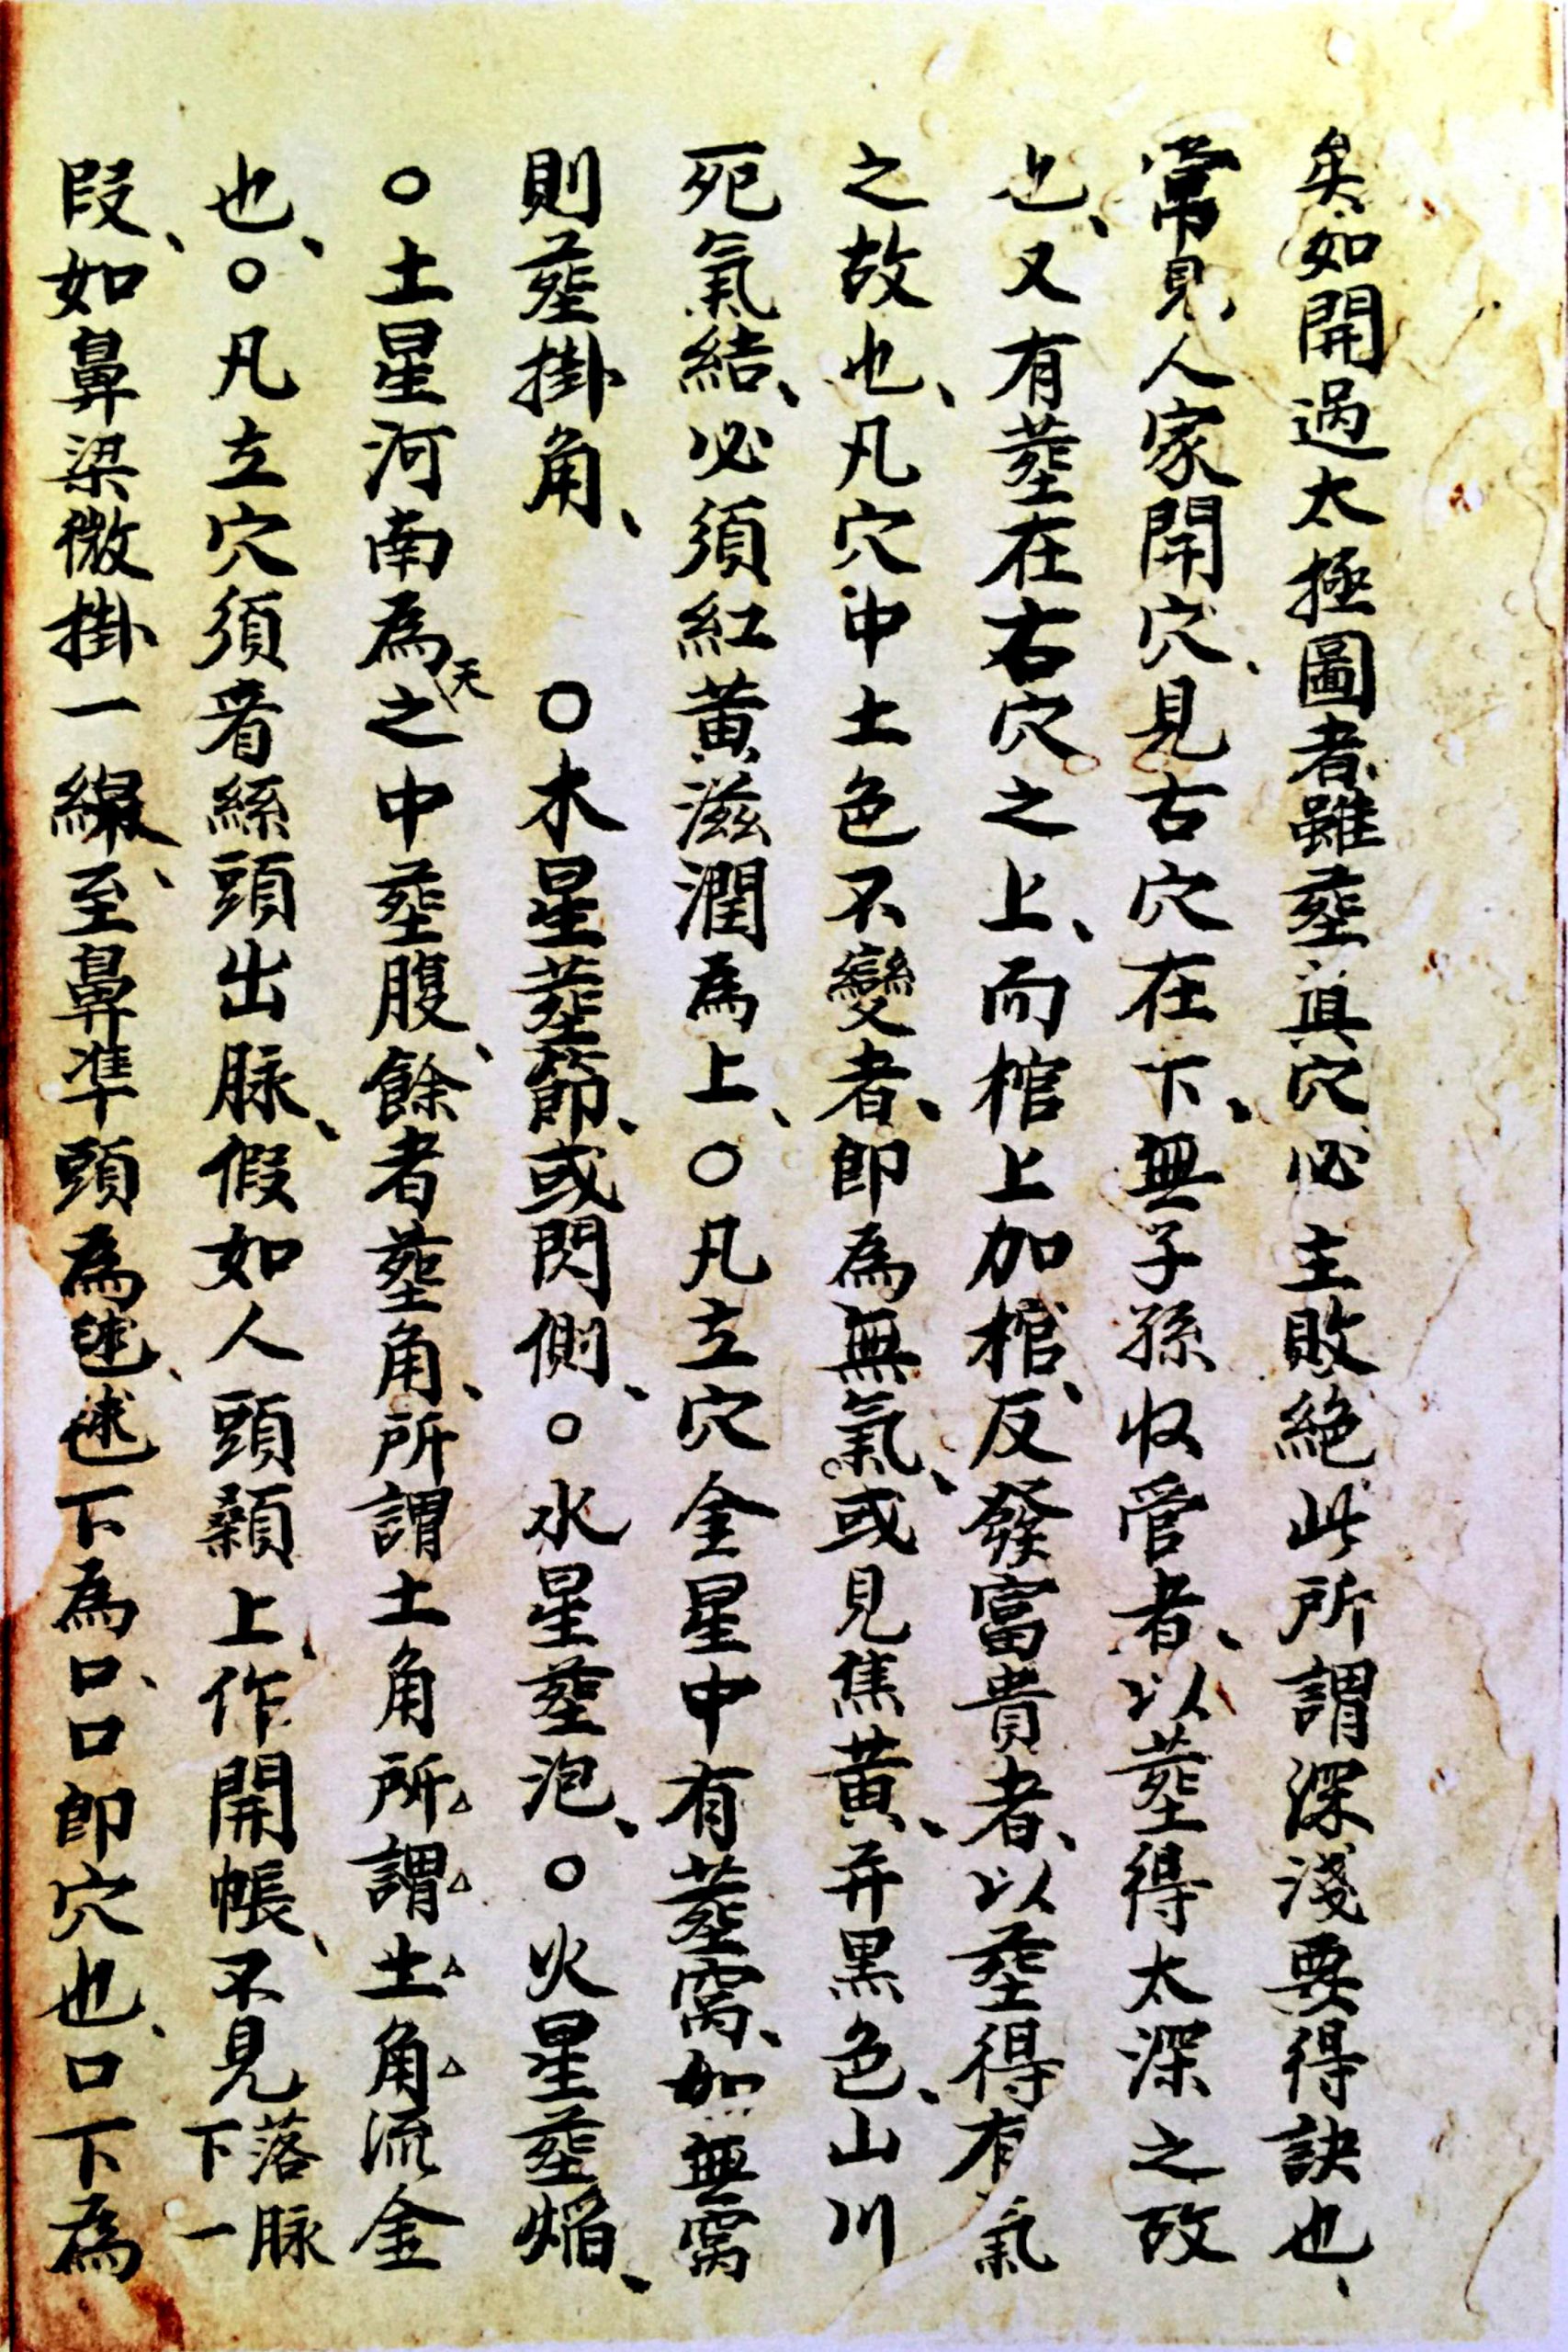 矣如開過太極圖者雖塟真穴必主敗絕此所謂深淺要得訣也、
常見人家開穴、見古穴在下、無子孫收管者、以塟得太深之故
也、又有塟在右穴之上、而棺上加棺、反發富貴者、以塟得有氣
之故也、凡穴中土色不變者、即為無氣、或見焦黃、弁黑色、山川
死氣結、必須紅黃滋潤為上、○凡立穴金星中有塟窩、如無窩
則塟掛角、○木星塟節、或閃側、○水星塟泡、○火星塟焰、
○土星河南為天之中塟腹、餘者塟角、所謂土角所謂土角流金
也、○凡立穴須看絲頭出脉、假如人頭顙上、作開帳、不見落脉下一
段、如鼻梁微掛一線、至鼻準頭為毬、毬下為口、口即穴也、口下為